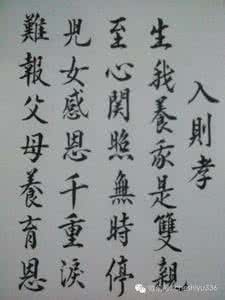 入則孝
生我養我是雙親
至心関照無時停
兒女感恩千重淚
難報父母養育恩